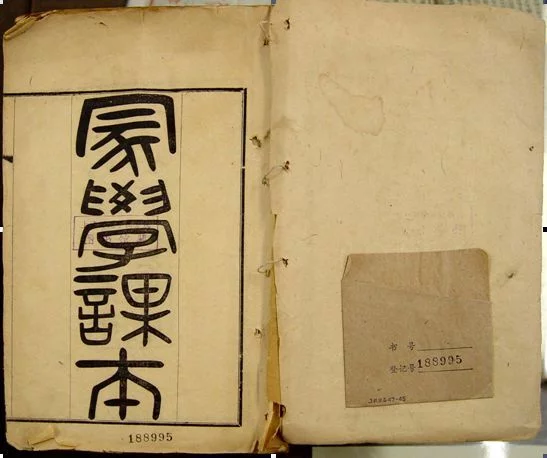 冡學課本
188995
书号
登记号188995